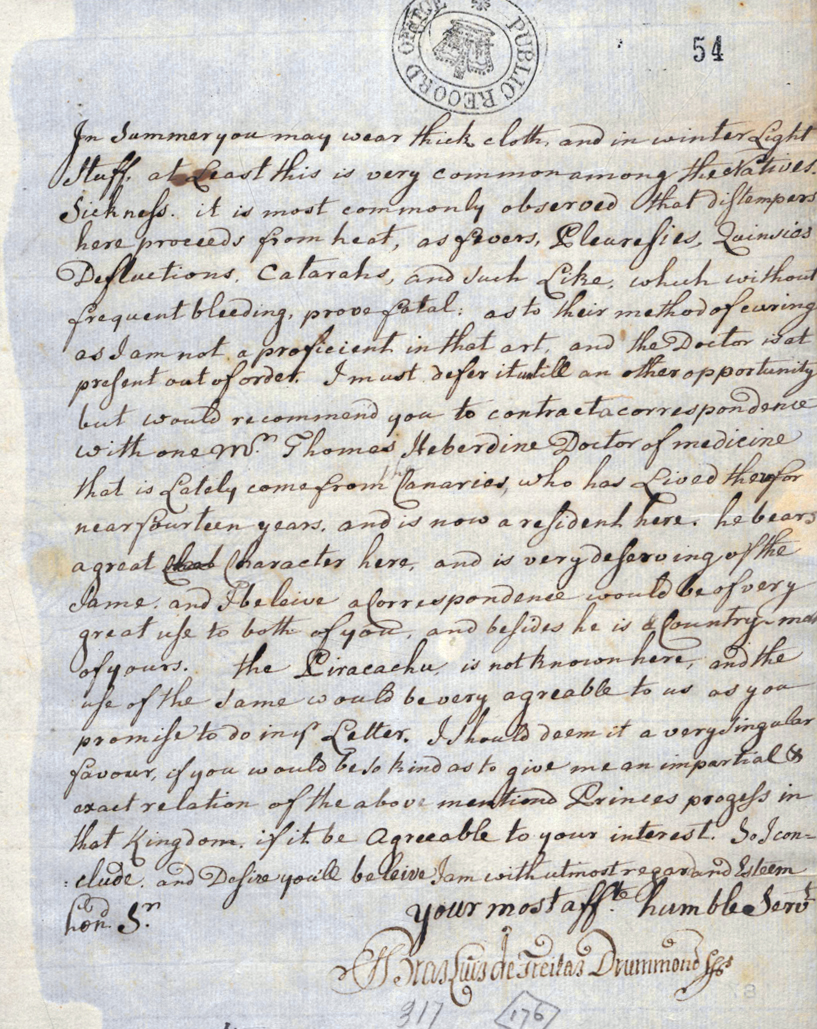 PUBLIC RECORD OFFICE
54
In Summer you may wear thick cloth, and in winter Light
Stuff, at Least this is very common among the Natives.
Sickness. it is most commonly observed that distempers
here proceeds from heat, as fevers, Pleuresies, Quinsies
Defluctions, Catarahs, and such Like, which without
frequent bleeding, prove fatal: as to their method of curing
as I am not a proficient in that art, and the Doctor is at
present out of order. I must defer it till an other opportunity
but would recommend you to contract a correspondence
with one Mr. Thomas Heberdine Doctor of medicine
that is Lately come from Canaries, who has Lived there for
near fourteen years, and is now a resident here. he bears
a great Character here, and is very deserving of the
Same, and I beleive a Correspondence would be of very
great use to both of you, and besides he is a Country-man
of yours. the Piracachu, is not known here, and the
use of the Same would be very agreable to us as you
promise to do in yr Letter. I should deem it a very Singular
favour, if you would be so kind as to give me an impartial &
exact relation of the above mentiond Princes progess in
that Kingdom, if it be Agreeable to your interest. So I con=
:clude, and Desire you'll beleive I am with utmost regard and Esteem
hond. Sr.
your most afft.e humble Servt
Bras Luis de Freitas Drummond
317
176